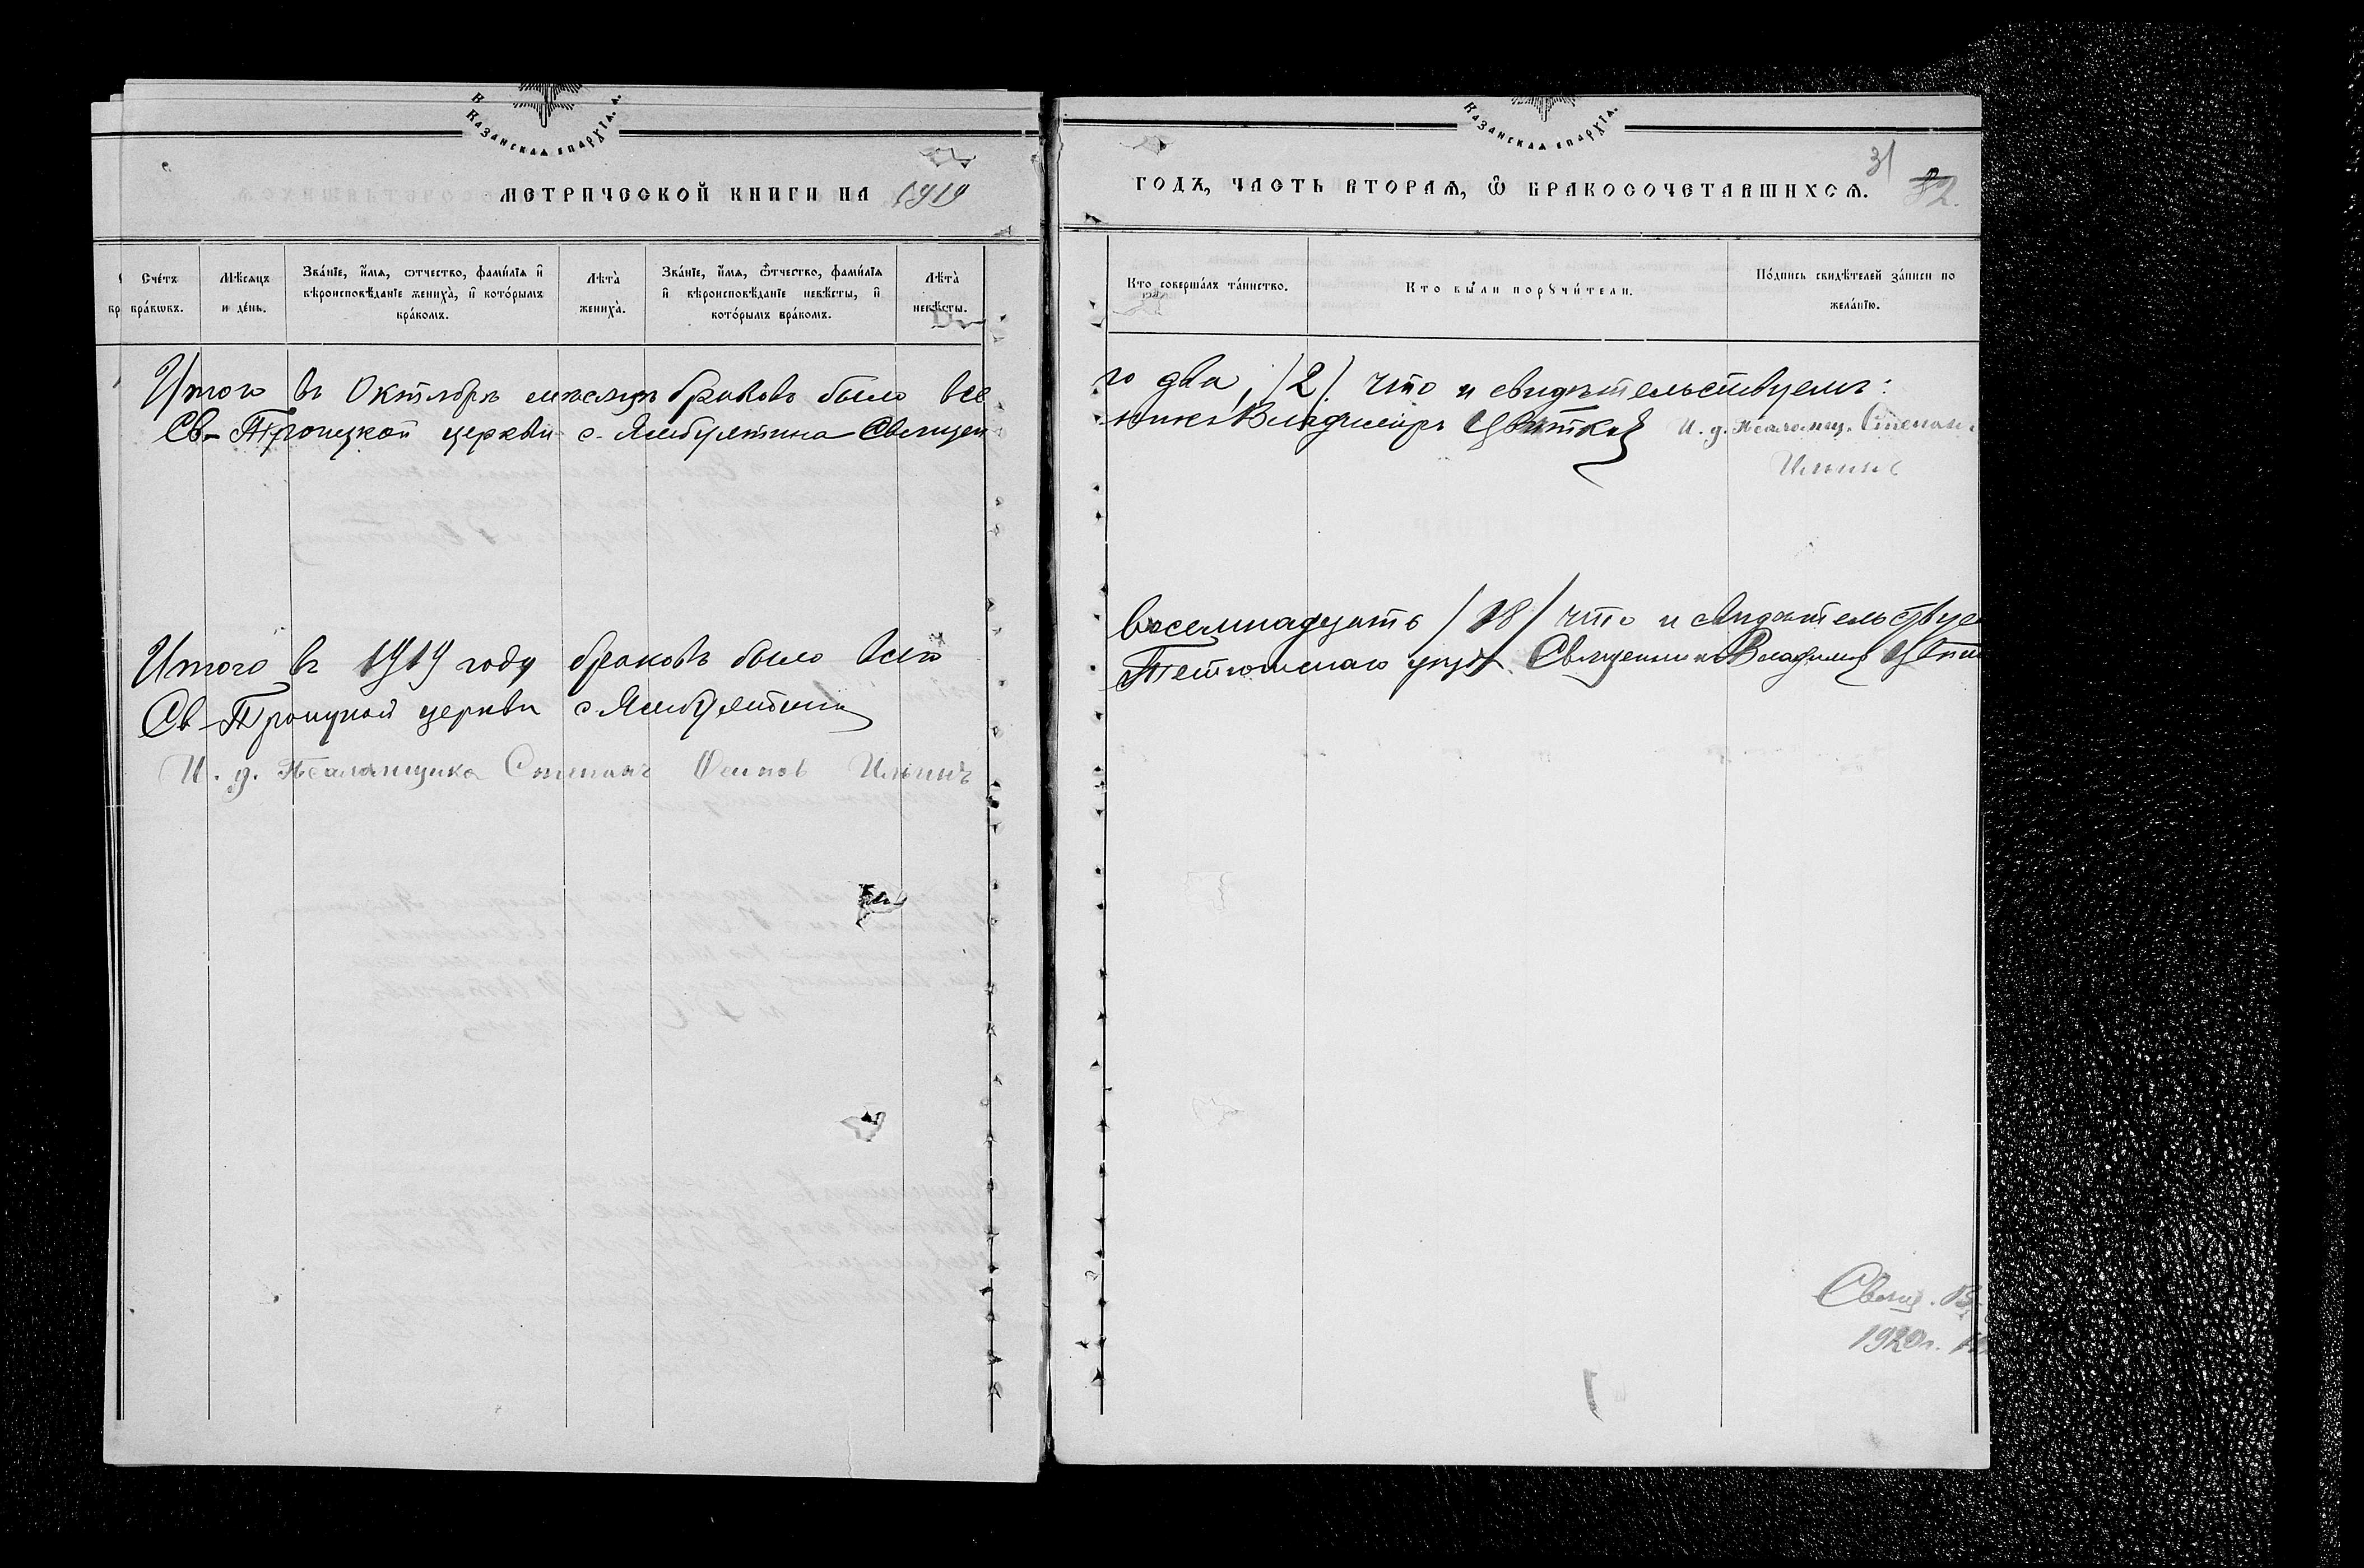 Казанская епархія.
МЕТРИЧЕСКОЙ КНИГИ НА 1919
Счéтъ брáкѡвъ.
Мѣсяцъ и дéнь.
Звáнїе, и́мя, ѻтчество, фамѝлїя и҆ вѣроисповѣ́данїе женихà, и҆ котóрымъ брáкомъ.
Лѣтà женихà.
Звáнїе, и́мя, ѻ҆́тчество, фамѝлїя и҆ вѣроисповѣ́данїе невѣ́сты, и҆ котóрымъ брáкомъ.
Лѣтà невѣ́сты.
Итого въ Октябрѣ мѣсяцѣ браковъ было все
Св-Троицкой церкви с. Ямбухтина Священ
Итого въ 1919 году браковъ было всего
Св-Троицкой церкви с. Ямбухтина
И. д. Псаломщика Степанъ Осипов Ильинъ
Казанская епархія.
31
ГОДЪ, ЧАСТЬ ВТОРАѦ, Ѿ БРАКОСОЧЕТАВШИХСѦ. 32.
Кто совершáлъ тáинство.
Кто бы́ли порꙋчи́тели.
Пóдпись свидѣ́телей зáписи по желáнїю.
го два, /2/. что и свидѣтельствуемъ:
никъ Владиміръ Цвѣтков И. д. Псаломщ. Степанъ
Ильинъ
восемнадцать /18/ что и свидѣтельствуе
Тетюшскаго уѣзда Священникъ Владиміръ Цвѣт
Свящ. В.
1920 г.